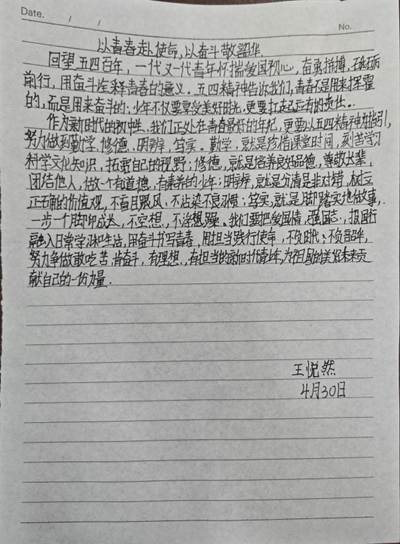 Date. / /
No.
以青春赴使命,以奋斗敬韶华
回望五四百年,一代又一代青年怀揣爱国初心,奋勇拼搏,砥砺
前行,用奋斗诠释青春的意义。五四精神告诉我们,青春不是用来挥霍
的,而是用来奋斗的;少年不仅要享受美好时光,更要扛起己有的责任。
作为新时代的初中生,我们正处在青春最好的年纪,更要以五四精神为指引,
努力做到勤学、修德、明辨、笃实。勤学,就是珍惜课堂时间,刻苦学习
科学文化知识,拓宽自己的视野;修德,就是培养良好品德,尊敬长辈,
团结他人,做一个有道德、有素养的少年;明辨,就是分清是非对错,树立
正确的价值观,不盲目跟风,不沾染不良习惯;笃实,就是脚踏实地做事,
一步一个脚印成长,不空想,不浮想。我们要把爱国情、强国志、报国行
融入日常学习和生活,用奋斗书写青春,用担当践行使命,不负时代、不负韶华,
努力争做敢吃苦、肯奋斗,有理想、有担当的新时代青年,为祖国的美好未来贡
献自己的一份力量.
王悦然
4月30日